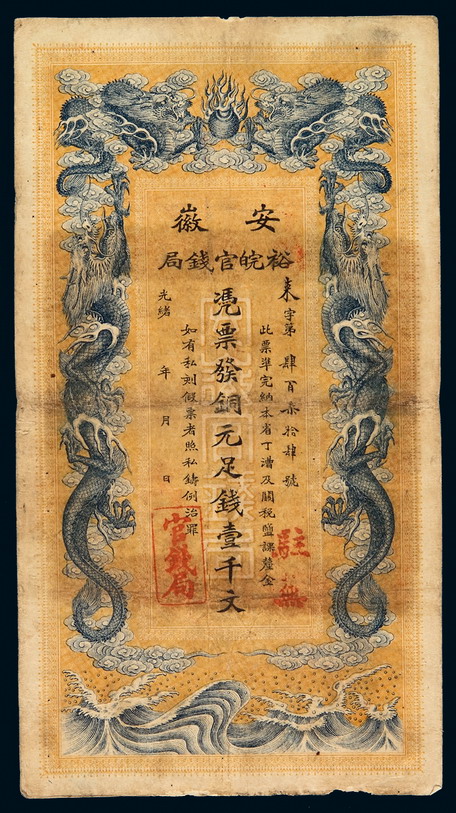 安徽
裕皖官錢局
来字第肆百柒拾肆號
此票準完納本省丁漕及關稅鹽課釐金
憑票發銅元足錢壹千文
如有私刻假票者照私鑄例治罪
光緒 年 月 日
駐蕪
官錢局